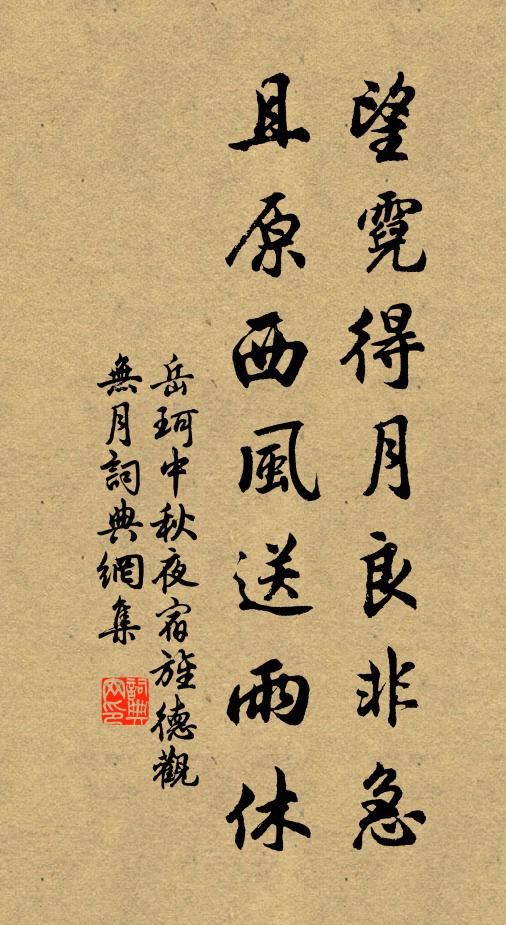 望霓得月良非急
且原西風送雨休
岳珂中秋夜宿旌德觀
無月詞典網集
詞典
网印